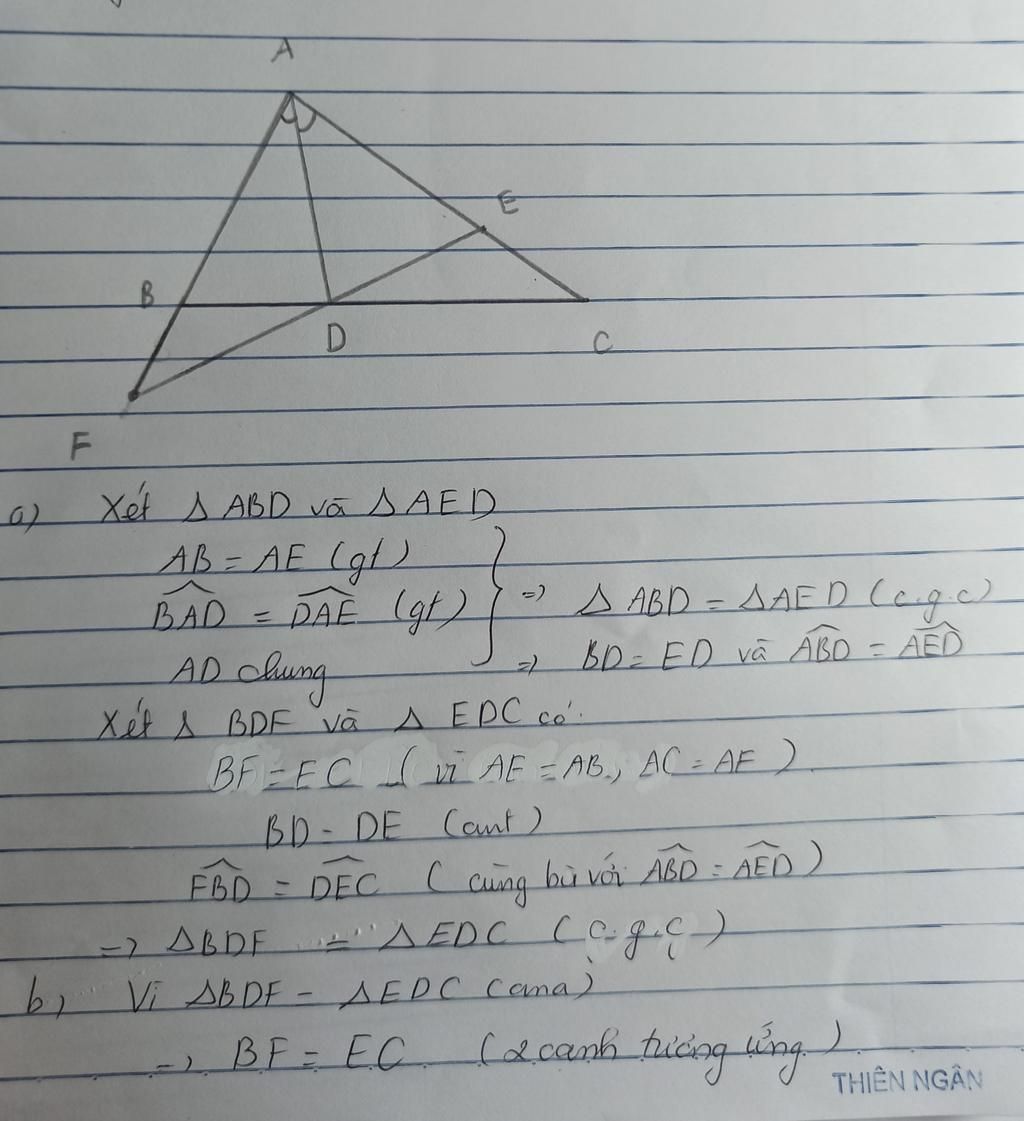 A
E
B
D
C
F
a) Xét Δ ABD và Δ AED
AB = AE (gt)
\widehat{BAD} = \widehat{DAE} (gt) } => Δ ABD = Δ AED (c.g.c)
AD chung => BD = ED và \widehat{ABD} = \widehat{AED}
Xét Δ BDF và Δ EDC có:
BF = EC (vì AE = AB, AC = AF)
BD = DE (cmt)
\widehat{FBD} = \widehat{DEC} (cùng bù với \widehat{ABD} = \widehat{AED})
=> Δ BDF = Δ EDC (c.g.c)
b) Vì Δ BDF = Δ EDC (cma)
=> BF = EC (2 cạnh tương ứng)
THIÊN NGÂN